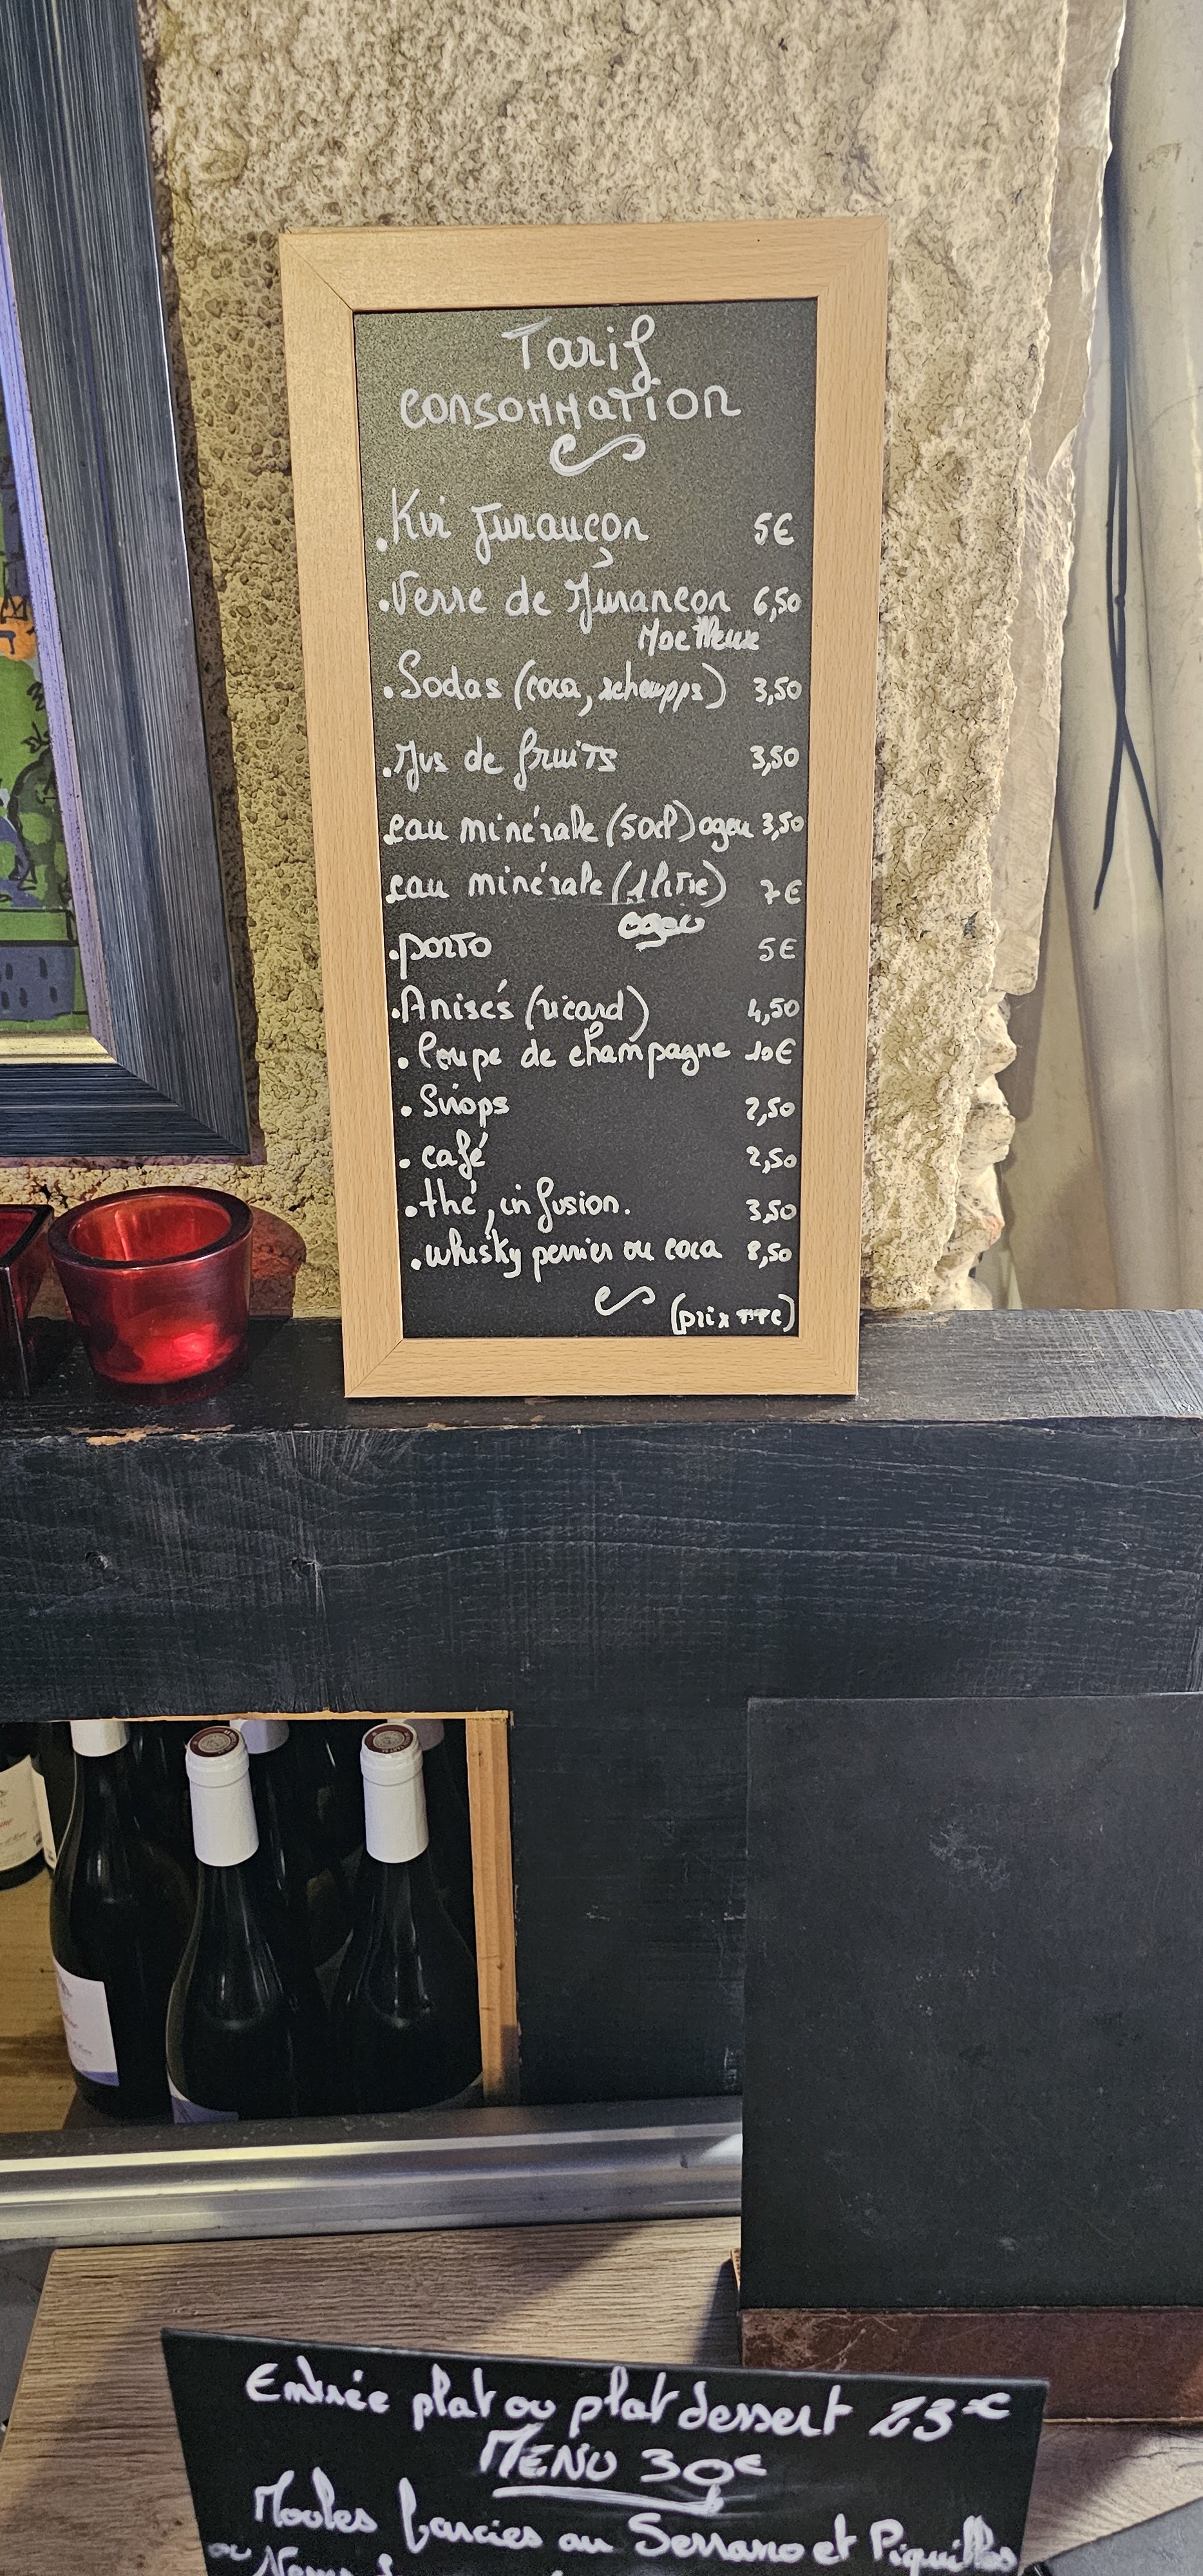 Tarif
consommation
. Kir Jurançon 5€
. Verre de Jurançon 6,50
Moelleux
. Sodas (coca, schewpps) 3,50
. Jus de fruits 3,50
eau minérale (50cl) ogeu 3,50
eau minérale (1 litre) 7€
ogeu
. porto 5€
. Anisés (ricard) 4,50
. Coupe de champagne 10€
. Sirops 2,50
. café 2,50
. thé, infusion. 3,50
. whisky perrier ou coca 8,50
(prix TTC)
Entrée plat ou plat dessert 23€
MENU 30€
Moules farcies au Serrano et Piquillos
ou